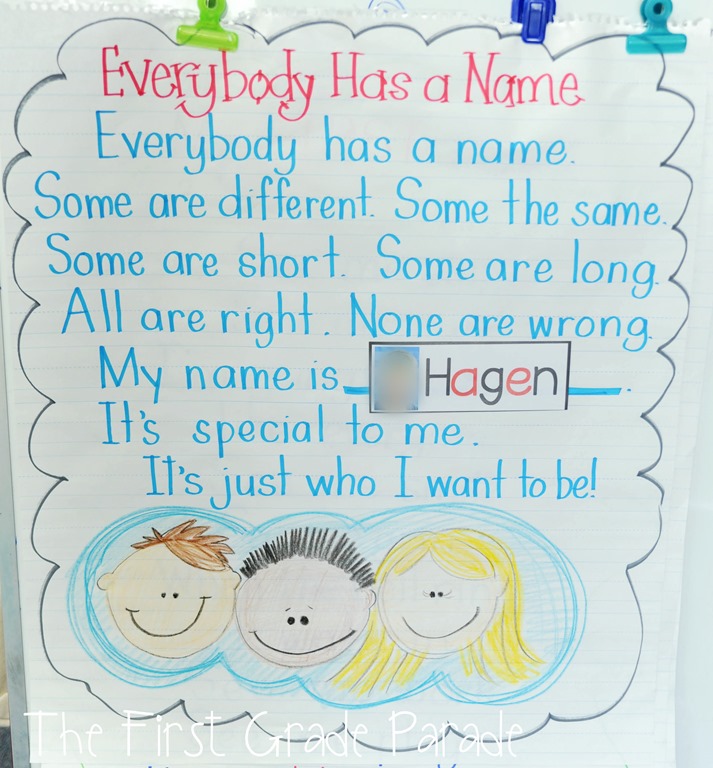 Everybody Has a Name
Everybody has a name.
Some are different. Some the same.
Some are short. Some are long.
All are right. None are wrong.
My name is Hagen.
It's special to me.
It's just who I want to be!
The First Grade Parade